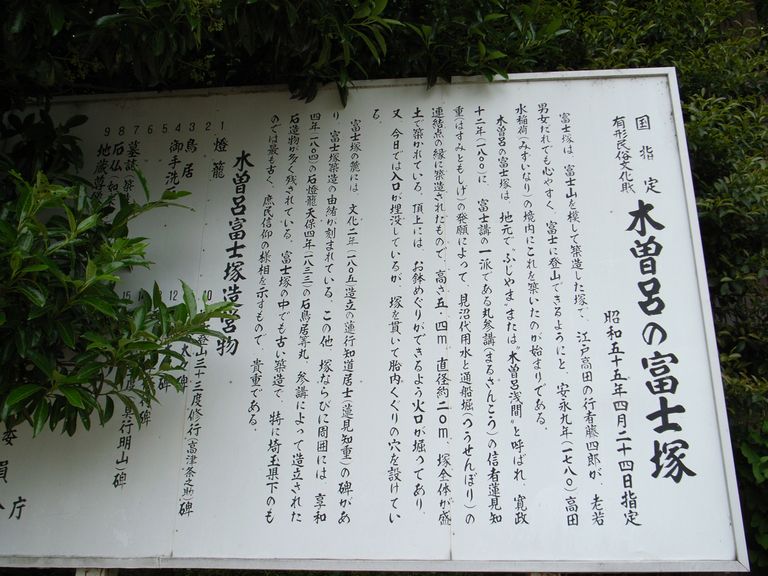 国指定
有形民俗文化財
木曽呂の富士塚
昭和五十五年四月二十四日指定
富士塚は、富士山を模して築造した塚で、江戸高田の行者藤四郎が、老若
男女だれでも心やすく、富士に登山できるようにと、安永九年(一七八〇)高田
水稲荷(みずいなり)の境内にこれを築いたのが始まりである。
木曽呂の富士塚は、地元で“ふじやま”または“木曽呂浅間”と呼ばれ、寛政
十二年(一八〇〇)に、富士講の一派である丸参講(まるさんこう)の信者蓮見知
重(はすみともしげ)の発願によって、見沼代用水と通船堀(つうせんぼり)の
連結点の縁に築造されたもので、高さ五・四m、直径約二〇m、塚全体が盛
土で築かれている。頂上には、お鉢めぐりができるよう火口が掘ってあり、
又、今日では入口が埋没しているが、塚を貫いて胎内くぐりの穴を設けてい
る。
富士塚の麓には、文化二年(一八〇五)造立の蓮行知道居士(蓮見知重)の碑があ
り、富士塚築造の由緒が刻まれている。この他、塚ならびに周囲には、享和
四年(一八〇四)の石燈籠、天保四年(一八三三)の石鳥居等、丸参講によって造立された
石造物が多く残されている。富士塚の中でも古い築造で、特に埼玉県下のも
のでは最も古く、庶民信仰の様相を示すもので、貴重である。
木曽呂富士塚造営物
1 燈籠
2
3 鳥居
4 御手洗
5
6
7 墓誌
8 石仏
9 地蔵尊
10 登山三十三度修行(高津条之助)碑
11
12 碑
15
行明山)碑
員
庁